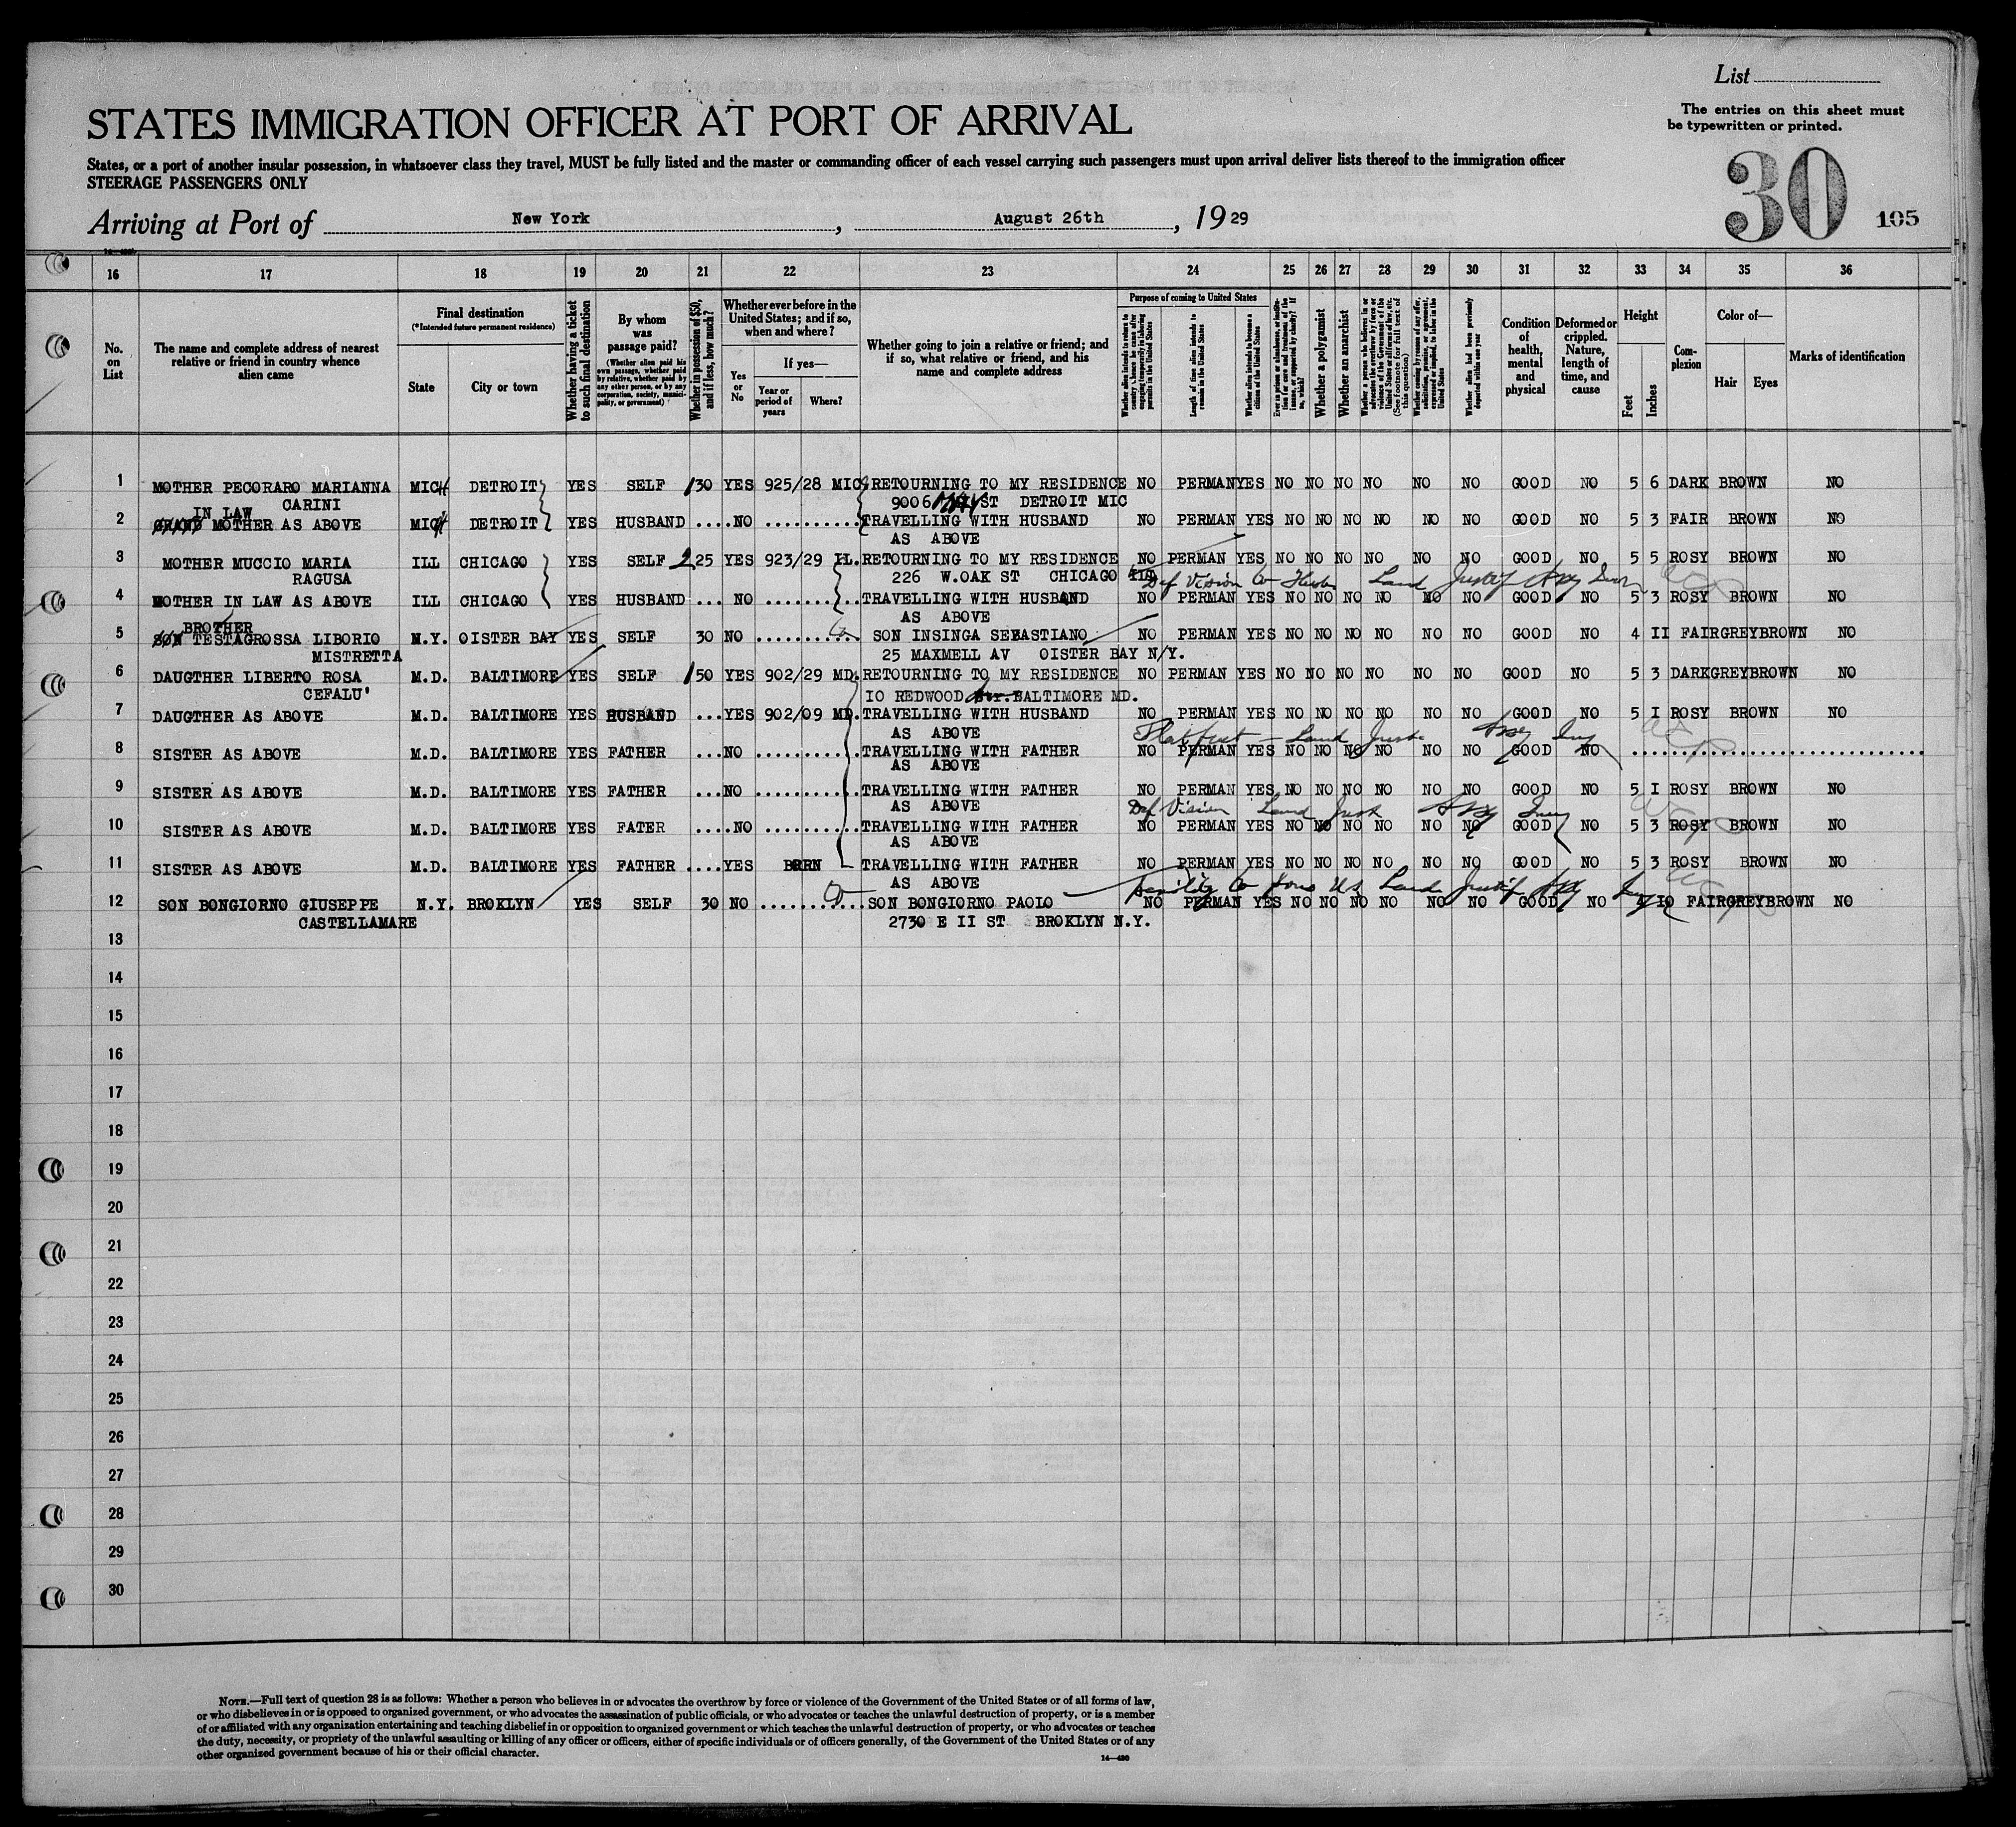 List
The entries on this sheet must
be typewritten or printed.
STATES IMMIGRATION OFFICER AT PORT OF ARRIVAL
States, or a port of another insular possession, in whatsoever class they travel, MUST be fully listed and the master or commanding officer of each vessel carrying such passengers must upon arrival deliver lists thereof to the immigration officer
STEERAGE PASSENGERS ONLY
30
105
Arriving at Port of New York, August 26th, 1929
16 17 18 19 20 21 22 23 24 25 26 27 28 29 30 31 32 33 34 35 36
No. on List
The name and complete address of nearest relative or friend in country whence alien came
Final destination
(*Intended future permanent residence)
State
City or town
Whether having a ticket to such final destination
By whom was passage paid?
(Whether alien paid his own passage, whether paid by relative, whether paid by any other person, or by any corporation, society, municipality, or government)
Whether in possession of $50, and if less, how much?
Whether ever before in the United States; and if so, when and where?
Yes or No
If yes—
Year or period of years
Where?
Whether going to join a relative or friend; and if so, what relative or friend, and his name and complete address
Purpose of coming to United States
Length of time alien intends to remain in the United States
Whether alien intends to become a citizen of the United States
Whether a polygamist
Whether an anarchist
Whether alien had been previously deported within one year
Condition of health, mental and physical
Deformed or crippled. Nature, length of time, and cause
Height
Feet
Inches
Complexion
Color of—
Hair
Eyes
Marks of identification
1 MOTHER PECORARO MARIANNA MICH DETROIT YES SELF 130 YES 925/28 MIC. RETOURNING TO MY RESIDENCE NO PERMAN YES NO NO NO NO NO NO GOOD NO 5 6 DARK BROWN NO
CARINI 9006 ST DETROIT MIC
IN LAW
2 GRAND MOTHER AS ABOVE MICH DETROIT YES HUSBAND .... NO .......... TRAVELLING WITH HUSBAND NO PERMAN YES NO NO NO NO NO NO GOOD NO 5 3 FAIR BROWN NO
AS ABOVE
3 MOTHER MUCCIO MARIA ILL CHICAGO YES SELF 225 YES 923/29 IL. RETOURNING TO MY RESIDENCE NO PERMAN YES NO NO NO NO NO NO GOOD NO 5 5 ROSY BROWN NO
RAGUSA 226 W.OAK ST CHICAGO ILL Def Vision
4 MOTHER IN LAW AS ABOVE ILL CHICAGO YES HUSBAND ... NO .......... TRAVELLING WITH HUSBAND NO PERMAN YES NO NO NO NO NO NO GOOD NO 5 3 ROSY BROWN NO
AS ABOVE
BROTHER
5 SON TESTAGROSSA LIBORIO N.Y. OISTER BAY YES SELF 30 NO .......... SON INSINGA SEBASTIANO NO PERMAN YES NO NO NO NO NO NO GOOD NO 4 II FAIR GREY BROWN NO
MISTRETTA 25 MAXMELL AV OISTER BAY N/Y.
6 DAUGTHER LIBERTO ROSA M.D. BALTIMORE YES SELF 150 YES 902/29 MD. RETOURNING TO MY RESIDENCE NO PERMAN YES NO NO NO NO NO NO GOOD NO 5 3 DARK GREY BROWN NO
CEFALU' IO REDWOOD BALTIMORE MD.
7 DAUGTHER AS ABOVE M.D. BALTIMORE YES HUSBAND ... YES 902/09 MD. TRAVELLING WITH HUSBAND NO PERMAN YES NO NO NO NO NO NO GOOD NO 5 I ROSY BROWN NO
AS ABOVE Flat feet
8 SISTER AS ABOVE M.D. BALTIMORE YES FATHER ... NO .......... TRAVELLING WITH FATHER NO PERMAN YES NO NO NO NO NO NO GOOD NO ..........
AS ABOVE
9 SISTER AS ABOVE M.D. BALTIMORE YES FATHER ... NO .......... TRAVELLING WITH FATHER NO PERMAN YES NO NO NO NO NO NO GOOD NO 5 I ROSY BROWN NO
AS ABOVE Def Vision
10 SISTER AS ABOVE M.D. BALTIMORE YES FATER .... NO .......... TRAVELLING WITH FATHER NO PERMAN YES NO NO NO NO NO NO GOOD NO 5 3 ROSY BROWN NO
AS ABOVE
11 SISTER AS ABOVE M.D. BALTIMORE YES FATHER .... YES BORN TRAVELLING WITH FATHER NO PERMAN YES NO NO NO NO NO NO GOOD NO 5 3 ROSY BROWN NO
AS ABOVE
12 SON BONGIORNO GIUSEPPE N.Y. BROKLYN YES SELF 30 NO .......... SON BONGIORNO PAOLO NO PERMAN YES NO NO NO NO NO NO GOOD NO IO FAIR GREY BROWN NO
CASTELLAMARE 2730 E II ST BROKLYN N.Y.
13
14
15
16
17
18
19
20
21
22
23
24
25
26
27
28
29
30
NOTE.—Full text of question 28 is as follows: Whether a person who believes in or advocates the overthrow by force or violence of the Government of the United States or of all forms of law,
or who disbelieves in or is opposed to organized government, or who advocates the assassination of public officials, or who advocates or teaches the unlawful destruction of property, or is a member
of or affiliated with any organization entertaining and teaching disbelief in or opposition to organized government or which teaches the unlawful destruction of property, or who advocates or teaches
the duty, necessity, or propriety of the unlawful assaulting or killing of any officer or officers, either of specific individuals or of officers generally, of the Government of the United States or of any
other organized government because of his or their official character.
14—430